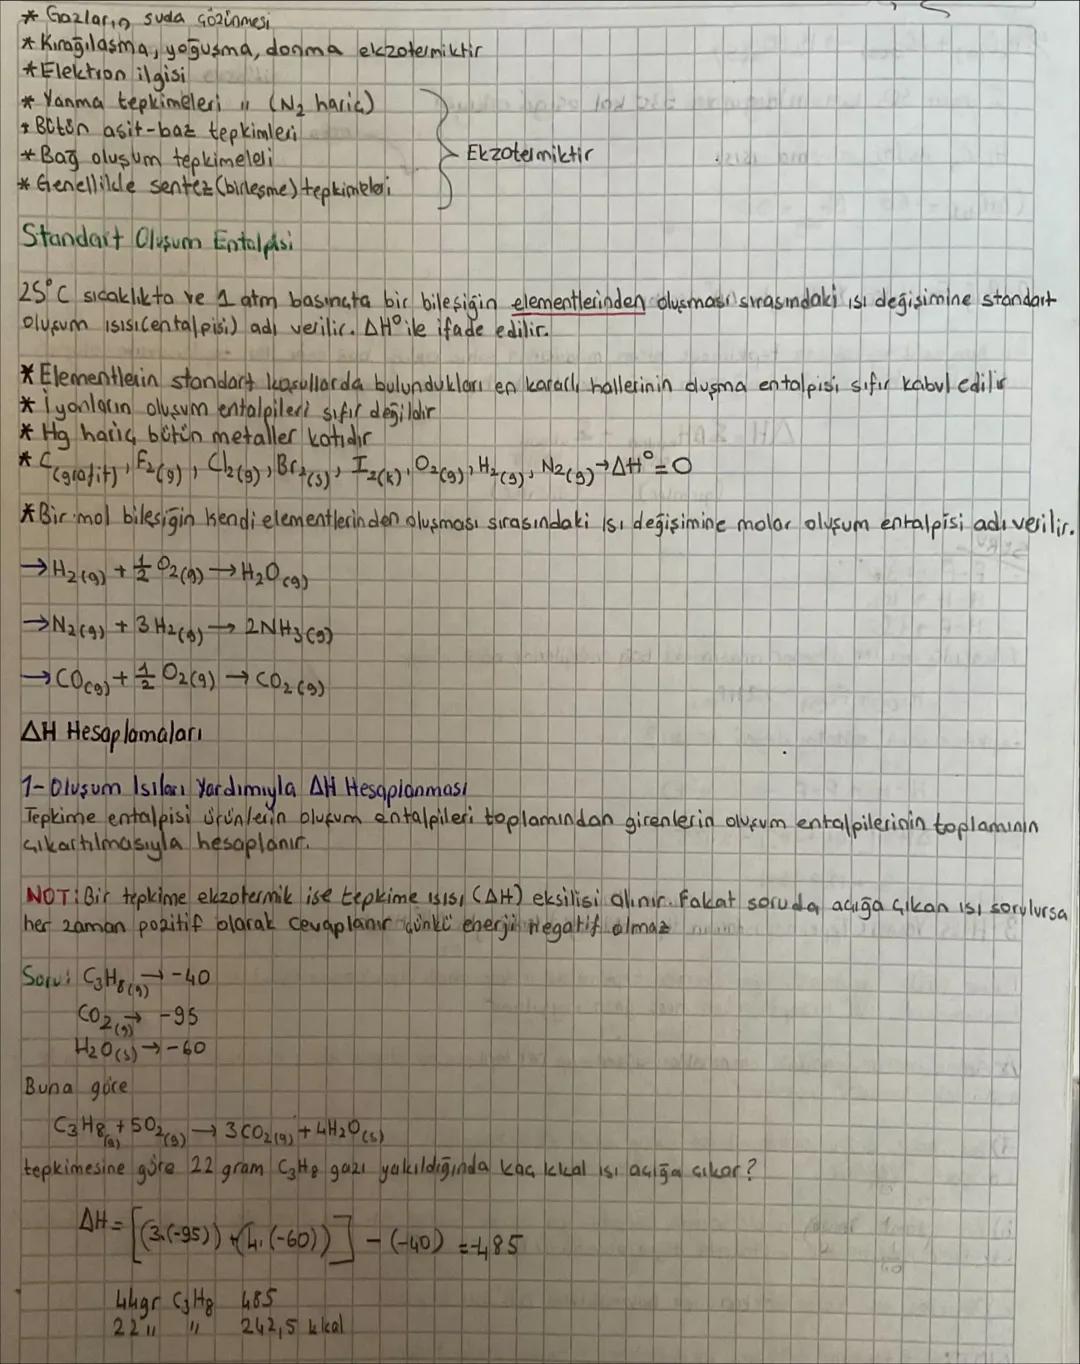 * Gazların suda çözünmesi
* Kırağılaşma, yoğuşma, donma ekzotermiktir
* Elektron ilgisi
* Yanma tepkimeleri " (N₂ hariç)
* Bütün asit-baz tepkimleri
* Bağ oluşum tepkimeleri
* Genellikle sentez (birleşme) tepkimeleri
Ekzotermiktir
Standart Oluşum Entalpisi
25°C sıcaklıkta ve 1 atm basınçta bir bileşiğin elementlerinden oluşması sırasındaki ısı değişimine standart
oluşum ısısı(entalpisi) adı verilir. ΔH° ile ifade edilir.
* Elementlerin standart koşullarda bulundukları en kararlı hallerinin oluşma entalpisi sıfır kabul edilir
* İyonların oluşum entalpileri sıfır değildir
* Hg hariç bütün metaller katıdır
* C(grafit), F₂(g), Cl₂(g), Br₂(s), I₂(k), O₂(g), H₂(g), N₂(g) → ΔH° = 0
* Bir mol bileşiğin kendi elementlerinden oluşması sırasındaki ısı değişimine molar oluşum entalpisi adı verilir.
→ H₂(g) + 1/2 O₂(g) → H₂O(g)
→ N₂(g) + 3H₂(g) → 2NH₃(g)
→ CO(g) + 1/2 O₂(g) → CO₂(g)
ΔH Hesaplamaları
1- Oluşum Isıları Yardımıyla ΔH Hesaplanması
Tepkime entalpisi ürünlerin oluşum entalpileri toplamından girenlerin oluşum entalpilerinin toplamının
çıkartılmasıyla hesaplanır.
NOT: Bir tepkime ekzotermik ise tepkime ısısı (ΔH) eksilisi alınır. Fakat soruda açığa çıkan ısı sorulursa
her zaman pozitif olarak cevaplanır çünkü enerji negatif olmaz
Soru: C₃H₈(g) → -40
CO₂(g) → -95
H₂O(s) → -60
Buna göre
C₃H₈(g) + 5O₂(g) → 3CO₂(g) + 4H₂O(s)
tepkimesine göre 22 gram C₃H₈ gazı yakıldığında kaç kkal ısı açığa çıkar?
ΔH = [(3.(-95)) + (4.(-60))] - (-40) = -485
44gr C₃H₈ 485
22 " " 242,5 kkal